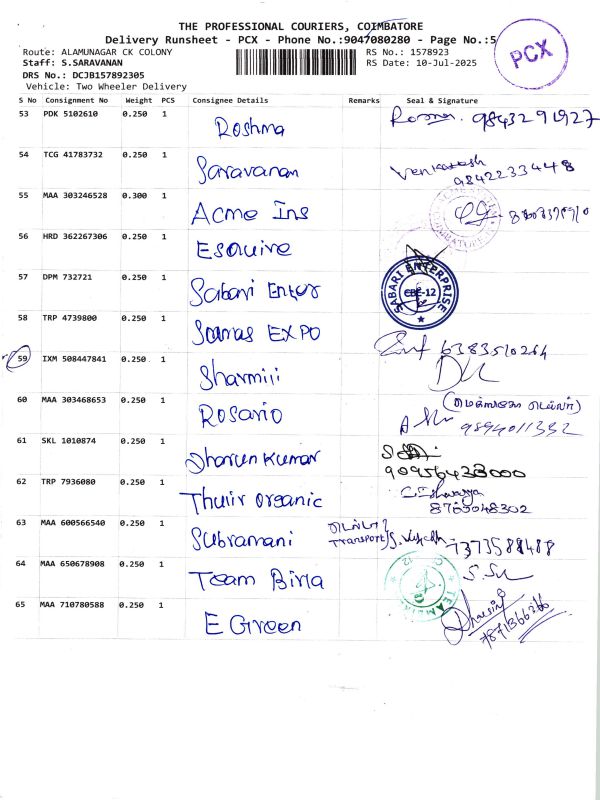 THE PROFESSIONAL COURIERS, COIMBATORE
Delivery Runsheet - PCX - Phone No.:9047080280 - Page No.:5
PCX
Route: ALAMUNAGAR CK COLONY
RS No.: 1578923
Staff: S.SARAVANAN
RS Date: 10-Jul-2025
DRS No.: DCJB157892305
Vehicle: Two Wheeler Delivery
S No Consignment No Weight PCS Consignee Details Remarks Seal & Signature
53 PDK 5102610 0.250 1 Roshma 9843291927
54 TCG 41783732 0.250 1 Saravanan Venkatesh
9842233448
55 MAA 303246528 0.300 1 Acme Ins
56 HRD 362267306 0.250 1 Esquire
57 DPM 732721 0.250 1 Sabari Enter
SABARI ENTERPRISE
CBE-12
58 TRP 4739800 0.250 1 EXPO
6383510264
59 IXM 508447841 0.250 1 Sharmili
60 MAA 303468653 0.250 1 Rosario
9894011332
61 SKL 1010874 0.250 1 Dharun Kumar
62 TRP 7936080 0.250 1 Thulir Organic
8765048302
63 MAA 600566540 0.250 1 Subramani Transport
7373588488
64 MAA 650678908 0.250 1 Team Birla
TEAM
65 MAA 710780588 0.250 1 E Green
7871366266